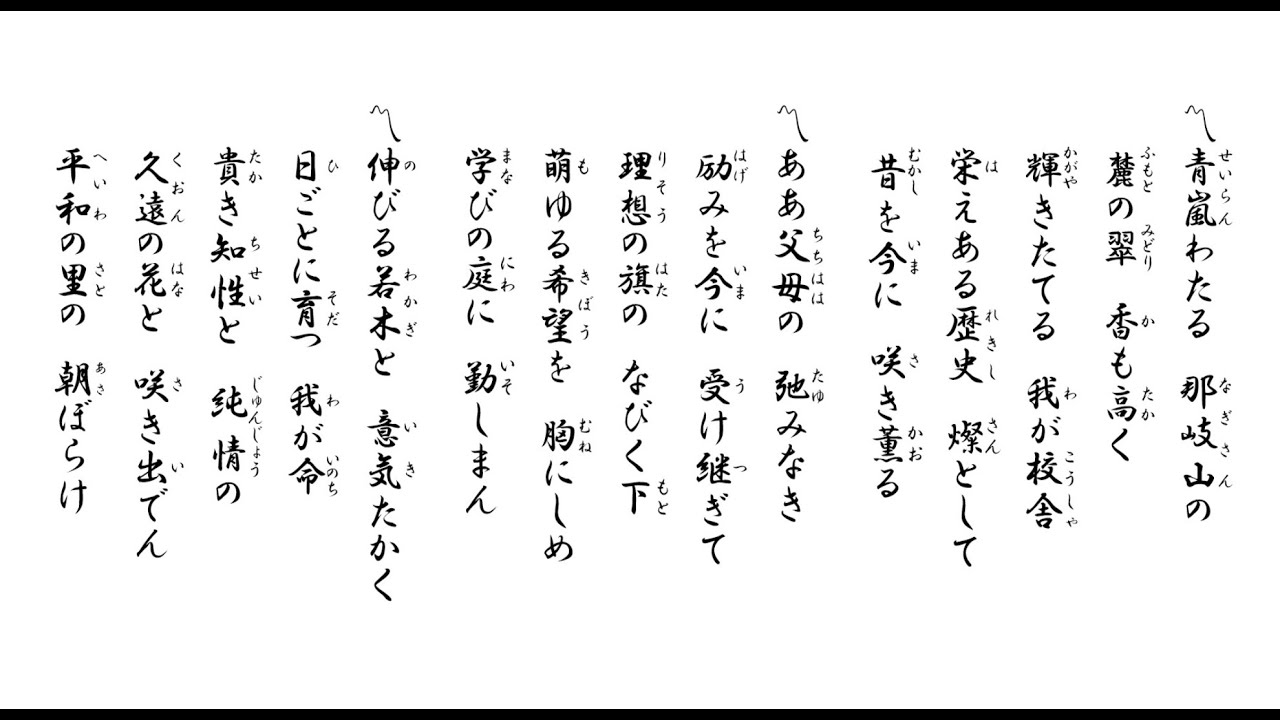 〽青嵐わたる　那岐山の
麓の翠　香も高く
輝きたてる　我が校舎
栄えある歴史　燦として
昔を今に　咲き薫る
〽ああ父母の　弛みなき
励みを今に　受け継ぎて
理想の旗の　なびく下
萌ゆる希望を　胸にしめ
学びの庭に　勤しまん
〽伸びる若木と　意気たかく
日ごとに育つ　我が命
貴き知性と　純情の
久遠の花と　咲き出でん
平和の里の　朝ぼらけ